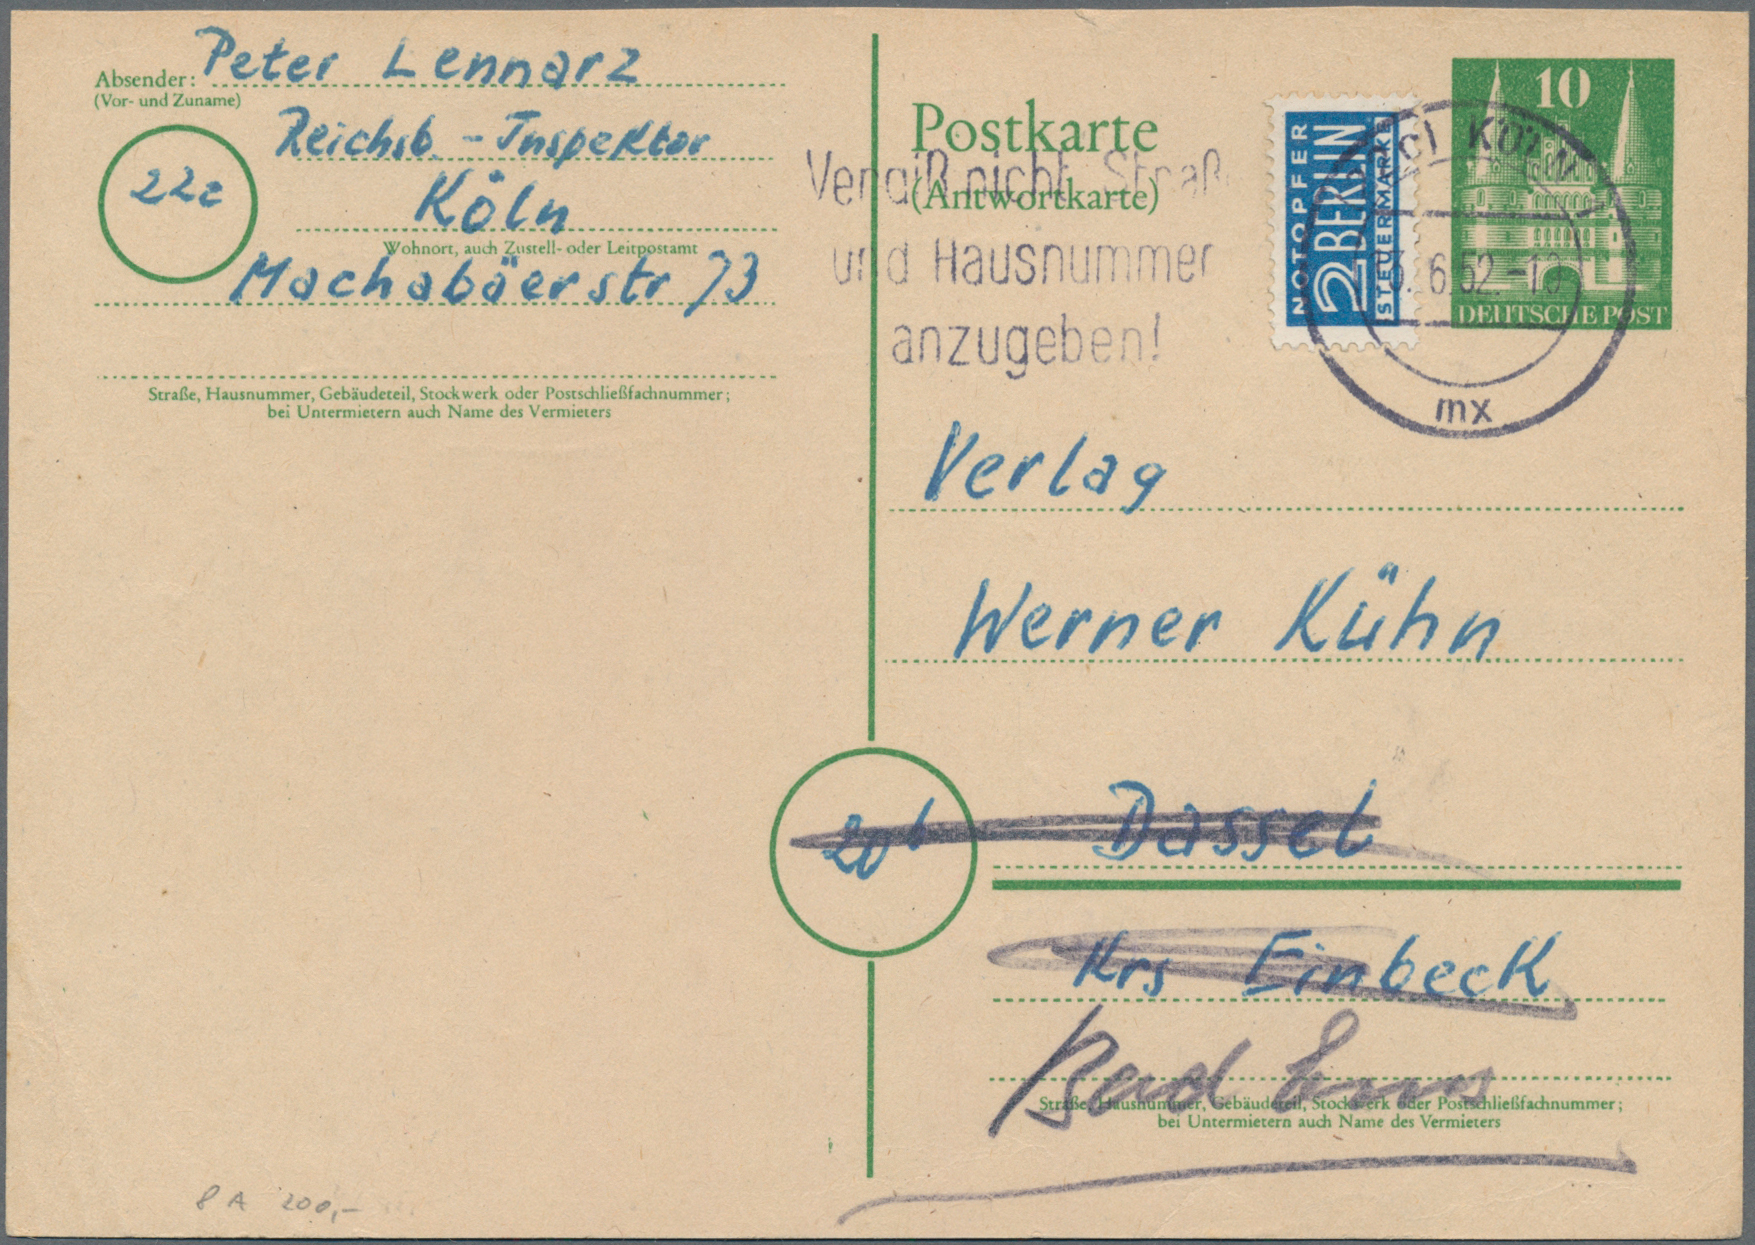 Absender: Peter Lennarz
(Vor- und Zuname)
Reichsb.-Inspektor
22c
Köln
Wohnort, auch Zustell- oder Leitpostamt
Machabäerstr 73
Straße, Hausnummer, Gebäudeteil, Stockwerk oder Postschließfachnummer;
bei Untermietern auch Name des Vermieters
Postkarte
(Antwortkarte)
Vergiß nicht Straß
und Hausnummer
anzugeben!
NOTOPFER
2 BERLIN
STEUERMARKE
10
DEUTSCHE POST
KÖLN
6.52.
mx
Verlag
Werner Kühn
20b Dassel
Krs Einbeck
Bad Ems
Straße, Hausnummer, Gebäudeteil, Stockwerk oder Postschließfachnummer;
bei Untermietern auch Name des Vermieters
8 A 200,-